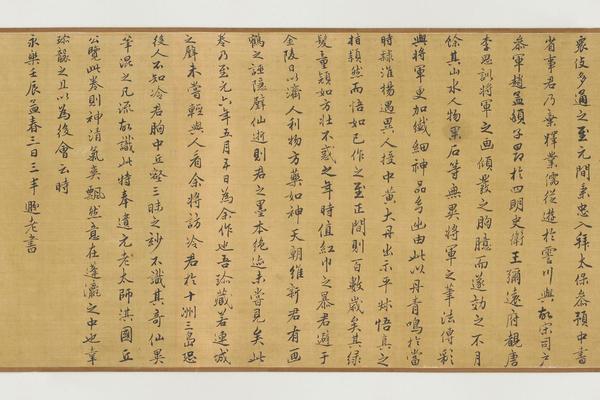 衆伎多通之至元間秉忠入拜太保參預中書
省事君乃棄釋業儒從遊於霅川與故宋司戶
參軍趙孟頫子昂於四明史衛王彌遠府覩唐
李思訓將軍之畫傾發之胸臆而遂効之不月
餘其山水人物窠石等無異將軍之筆法傅彩
與將軍更加纖細神品幻出由此以丹青鳴於當
時隸淮揚遇異人授中黃大丹出示平叔悟真之
指頴然而悟如己作之至正間則百數歲矣其綠
髮童顏如方壯不惑之年時值紅巾之暴君避于
金陵日以濟人利物方藥如神天朝維新君有畫
鶴之誣隱壁仙逝則君之墨本絕迹未嘗見矣此
卷乃至元六年五月五日為余作也吾珍藏若連城
之璧未嘗輕與人看余將訪冷君於十洲三島恐
後人不知冷君胸中丘壑三昧之妙不識其奇仙異
筆混之凡流故識此特奉遺元老太師淇國丘
公覽此卷則神清氣爽飄然意在蓬瀛之中也幸
珍襲之且以為後會云時
永樂壬辰孟春三日三丰遯老書